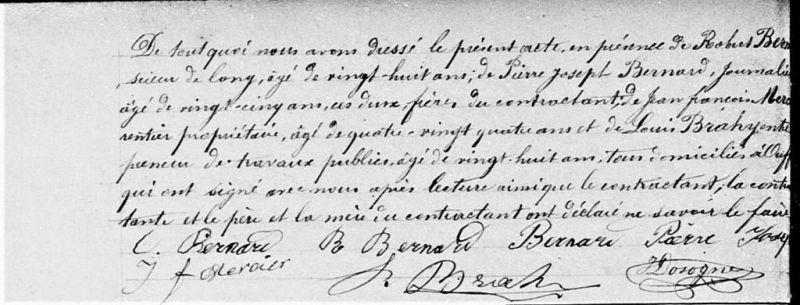 De tout quoi nous avons dressé le présent acte, en présence de Robert Bern
, scieur de long, âgé de vingt-huit ans; de Pierre Joseph Bernard, Journali
âgé de vingt-cinq ans, ces deux frères du contractant, de Jean françois Merc
rentier propriétaire, âgé de quatre-vingt quatre ans et de Louis Brahy entre
preneur de travaux publics, âgé de vingt-huit ans, tous domiciliés à Ouff
qui ont signé avec nous après lecture ainsi que le contractant; la contr
tante et le père et la mère du contractant ont déclaré ne savoir le faire
C. Bernard R Bernard Bernard Pierre Josep
J f Mercier L Brah Dosogne